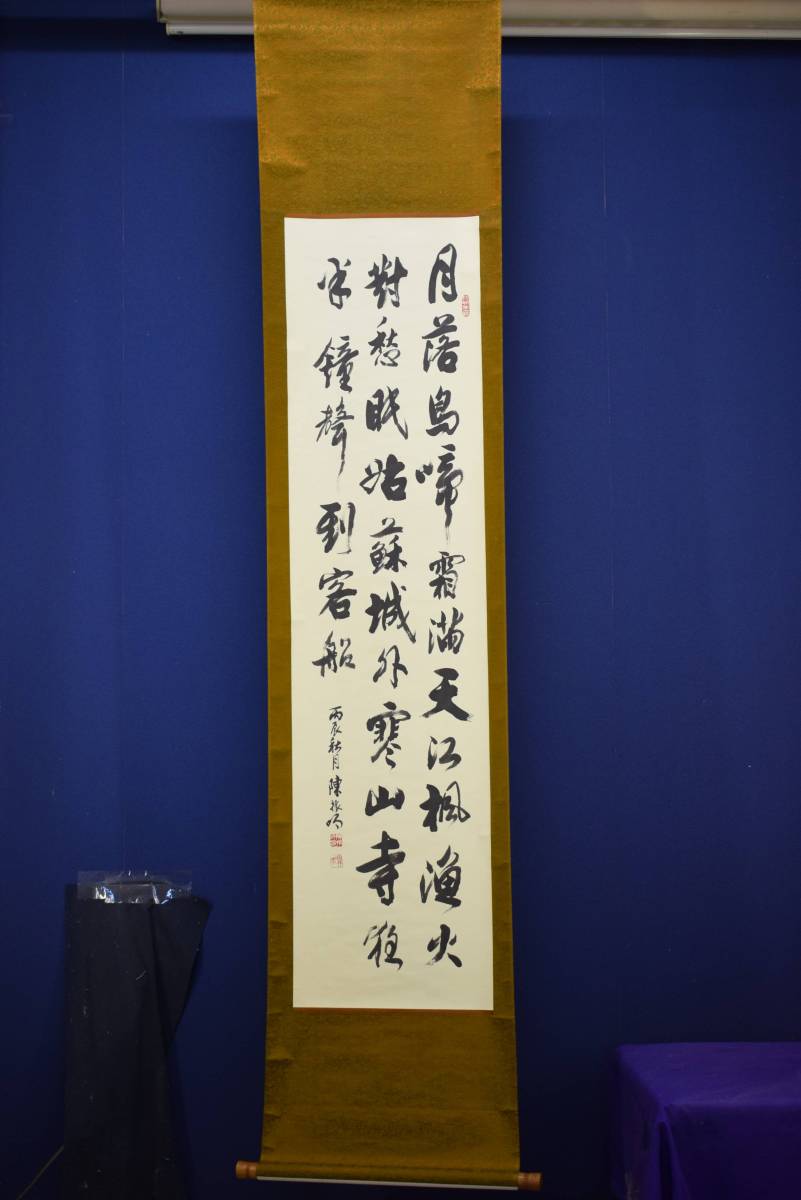 月落烏啼霜滿天江楓漁火
對愁眠姑蘇城外寒山寺夜
半鐘聲到客船
丙辰秋月陳振